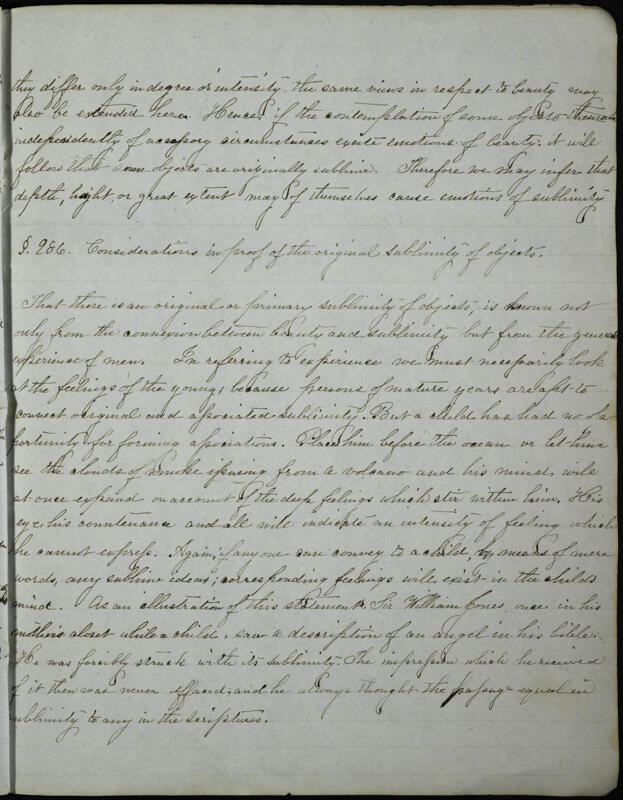 they differ only in degree or intensity, the same views in respect to beauty may
also be extended here. Hence, if the contemplation of some objects
independently of accessory circumstances excite emotions of beauty: it will
follow that some objects are originally sublime. Therefore we may infer that
depth, hight, or great extent may of themselves cause emotions of sublimity
§. 286. Considerations in proof of the original sublimity of objects.
That there is an original or primary sublimity of objects, is known not
only from the connexion between beauty and sublimity but from the general
experience of men. In referring to experience we must necessarily look
at the feelings of the young; because persons of mature years are apt to
connect original and associated sublimity. But a child has had no op
portunity for forming associations. Place him before the ocean or let him
see the clouds of smoke issuing from a volcano and his mind, will
at once expand on account of the deep feelings which stir within him. His
eye, his countenance and all will indicate an intensity of feeling which
he cannot express. Again; if any one can convey to a child, by means of mere
words, any sublime ideas; corresponding feelings will exist in the child's
mind. As an illustration of this statement. Sir William Jones, once in his
mothers closet while a child, saw a description of an angel in his bible:
He was forcibly struck with its sublimity. The impression which he received
of it then was never effaced; and he always thought the passage equal in
sublimity to any in the scriptures.